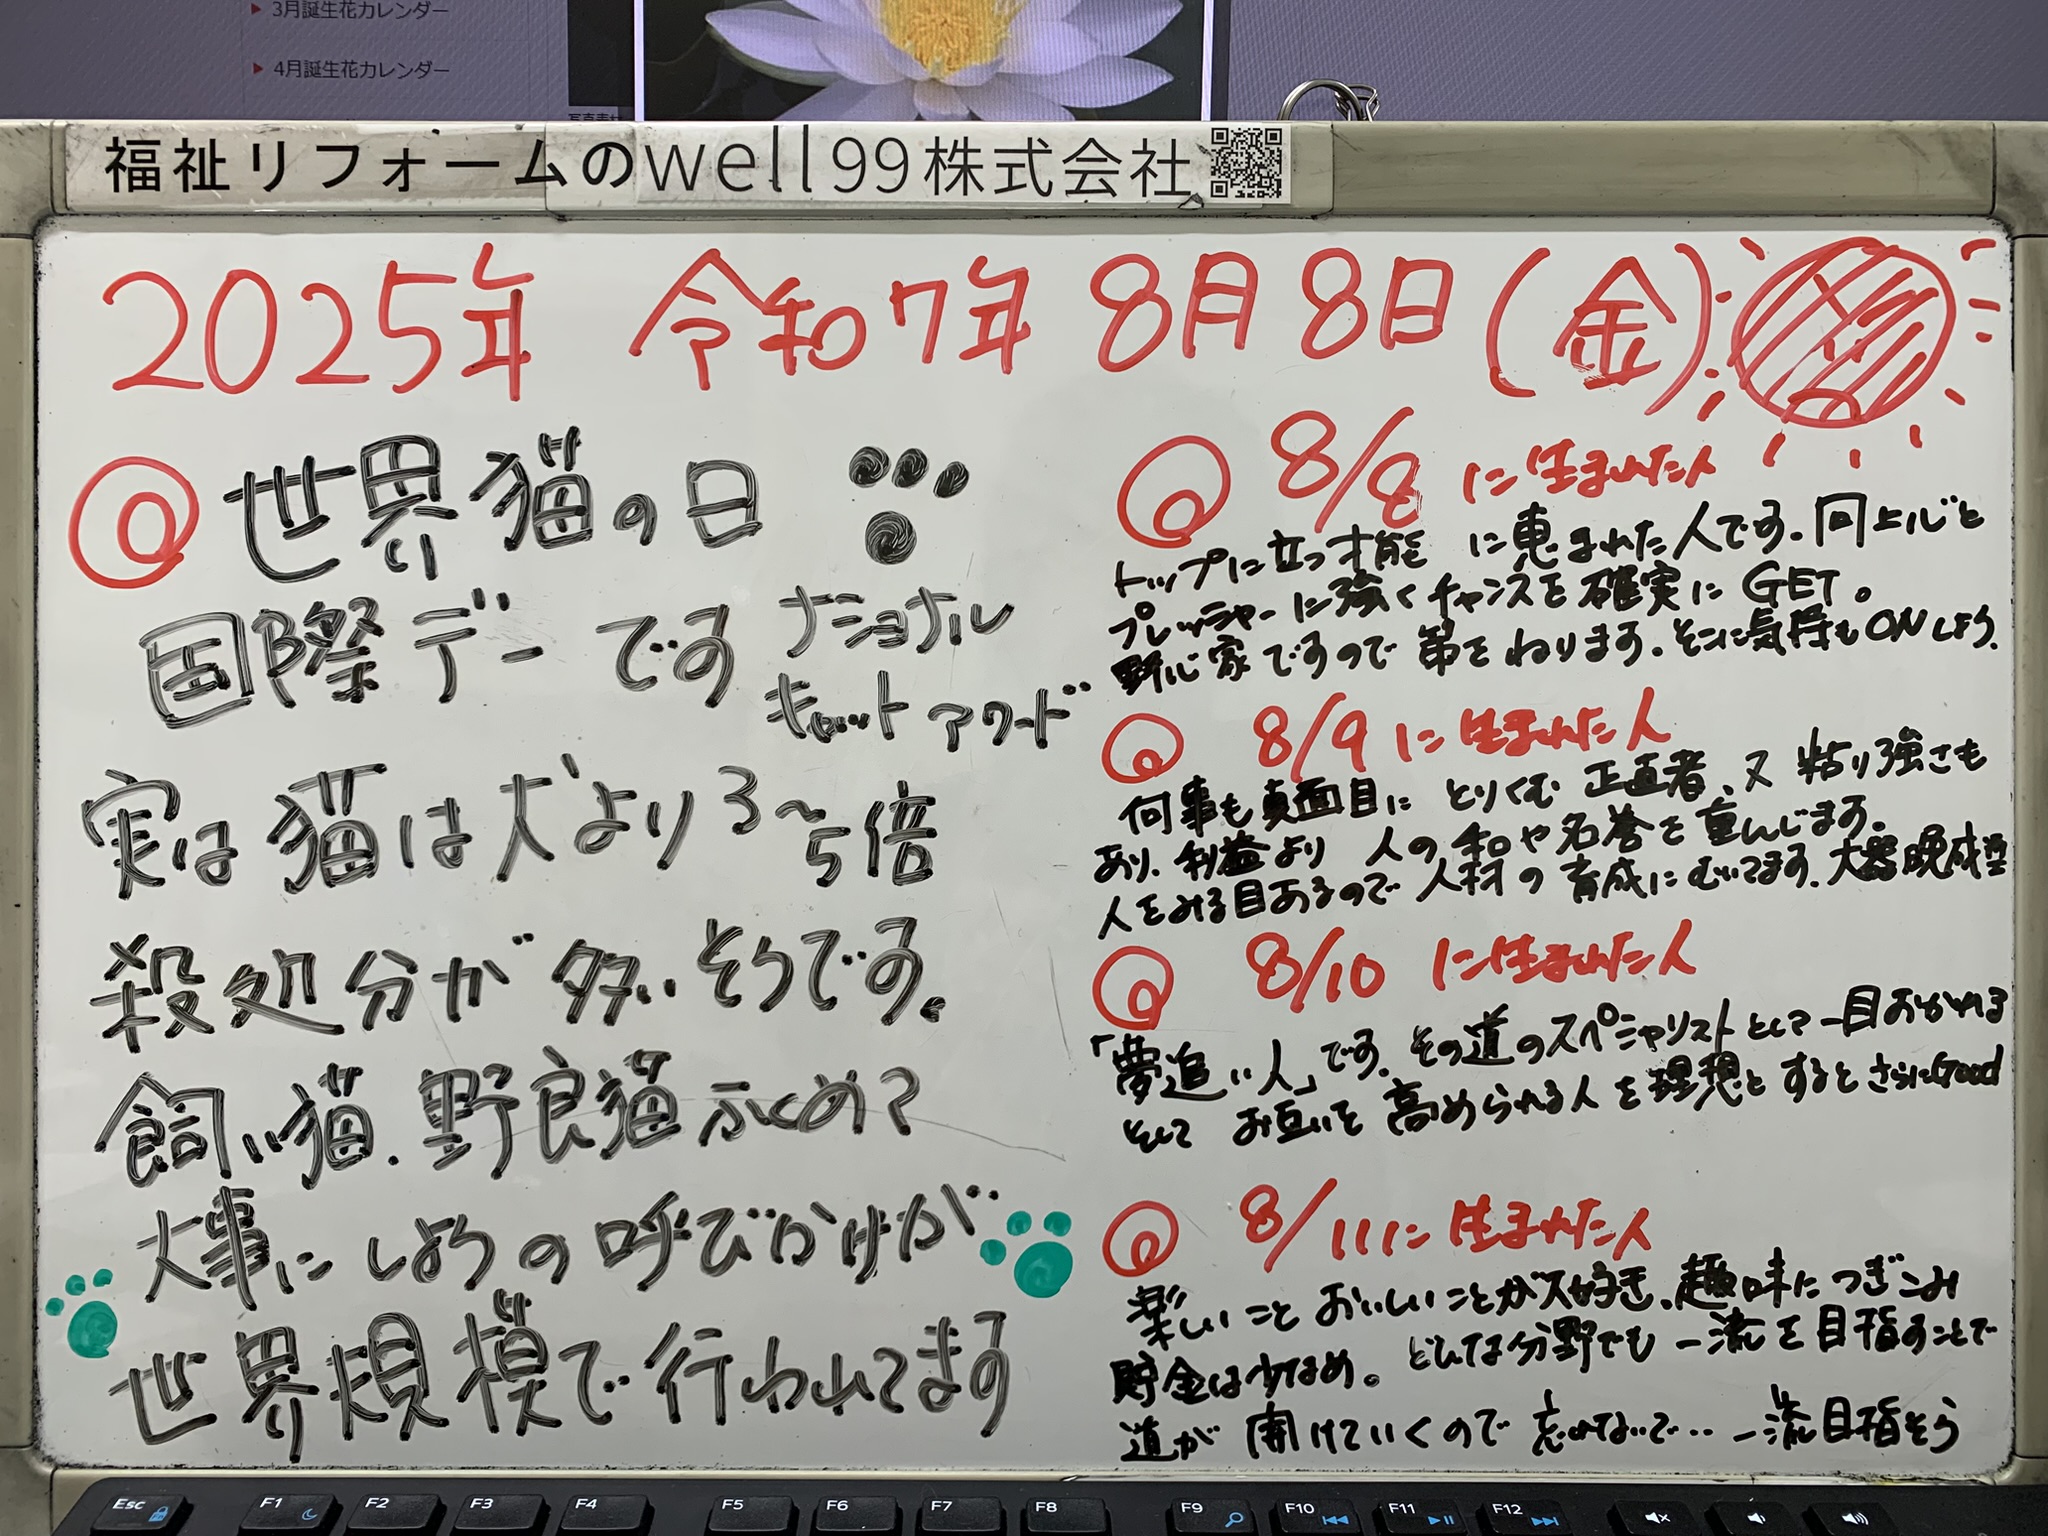 3月誕生花カレンダー
4月誕生花カレンダー
福祉リフォームのwell99株式会社
2025年 令和7年 8月8日(金)
世界猫の日
国際デーです ナショナル
キャット アワード
実は猫は犬より3〜5倍
殺処分が多いそうです。
飼い猫、野良猫ふくめて
大事にしようの呼びかけが
世界規模で行われてます
8/8に生まれた人
トップに立つ才能に恵まれた人です。向上心と
プレッシャーに強くチャンスを確実にGET。
野心家ですので策をねります。そこに気持もONしよう。
8/9に生まれた人
何事も真面目にとりくむ正直者、又粘り強さも
あり、利益より人の和や名誉を重んじます。
人をみる目あるので人材の育成にむいてます。大器晩成型
8/10に生まれた人
「夢追い人」です。その道のスペシャリストとして一目おかれる
そしてお互いを高められる人を理想とするとさらにGood
8/11に生まれた人
楽しいことおいしいことが大好き、趣味につぎこみ
貯金は少なめ。どんな分野でも一流を目指すことで
道が開けていくので忘れないで‥一流目指そう
Esc F1 F2 F3 F4 F5 F6 F7 F8 F9 F10 F11 F12